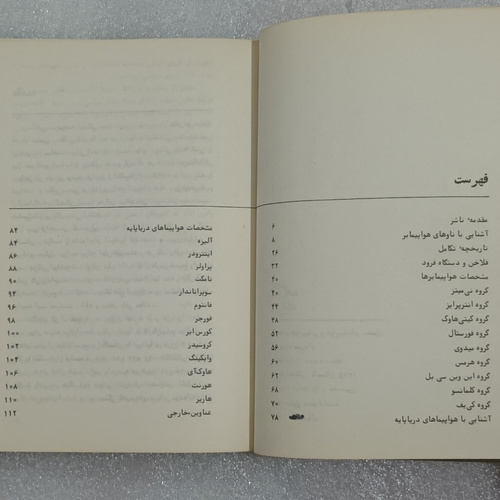 فهرست
مقدمهٔ ناشر ۶
آشنایی با ناوهای هواپیمابر ۸
تاریخچهٔ تکامل ۲۶
فلاخن و دستگاه فرود ۳۲
مشخصات هواپیمابرها ۴۰
گروه نی‌میتز ۴۰
گروه اینترپرایز ۴۴
گروه کیتی‌هاوک ۴۸
گروه فورستال ۵۲
گروه میدوی ۵۶
گروه هرمس ۶۰
گروه این وین سی بل ۶۲
گروه کلمانسو ۶۸
گروه کی‌یف ۷۰
آشنایی با هواپیماهای دریاپایه ۷۸
مشخصات هواپیماهای دریاپایه ۸۴
آلیزه ۸۴
اینترودر ۸۶
پراولر ۸۸
تامکت ۹۰
سوپراتاندار ۹۴
فانتوم ۹۶
فورجر ۹۸
کورس‌ایر ۱۰۰
کروسیدر ۱۰۲
وایکینگ ۱۰۴
هاوک‌آی ۱۰۶
هورنت ۱۰۸
هاریر ۱۱۰
عناوین‌خارجی ۱۱۲